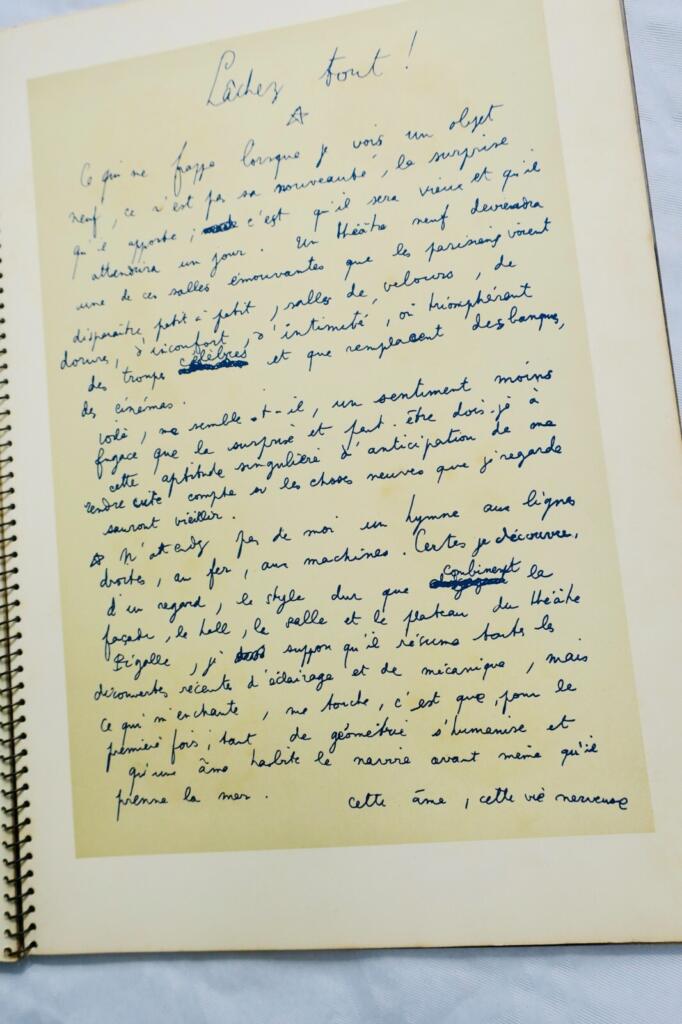 Lâchez tout !
Ce qui me frappe lorsque je vois un objet
neuf, ce n'est pas sa nouveauté, la surprise
qu'il apporte ; c'est qu'il sera vieux et qu'il
attendrira un jour. Un théâtre neuf deviendra
une de ces salles émouvantes que les parisiens voient
disparaître petit à petit, salles de velours, de
dorures, d'inconfort, d'intimité, où triomphèrent
des troupes célèbres et que remplacent des banques,
des cinémas.
Voilà, me semble-t-il, un sentiment moins
fugace que la surprise et peut-être dois-je à
cette aptitude singulière d'anticipation de me
rendre compte si les choses neuves que je regarde
sauront vieillir.
N'attendez pas de moi un hymne aux lignes
droites, au fer, aux machines. Certes je découvre,
d'un regard, le style dur que combinent la
façade, le hall, la salle et le plateau du théâtre
Pigalle, je suppose qu'il résume toutes les
découvertes récentes d'éclairage et de mécanique, mais
ce qui m'enchante, me touche, c'est que, pour la
première fois, tant de géométrie s'humanise et
qu'une âme habite le navire avant même qu'il
prenne la mer.
cette âme, cette vie nerveuse